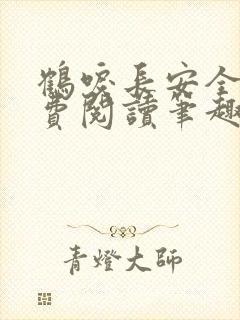 鶴唳長安全
費閱讀筆趣
青燈大師